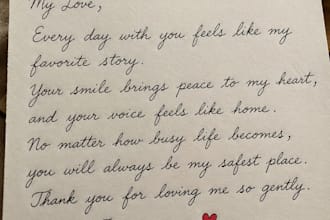 My Love,
Every day with you feels like my
favorite story.
Your smile brings peace to my heart,
and your voice feels like home.
No matter how busy life becomes,
you will always be my safest place.
Thank you for loving me so gently.